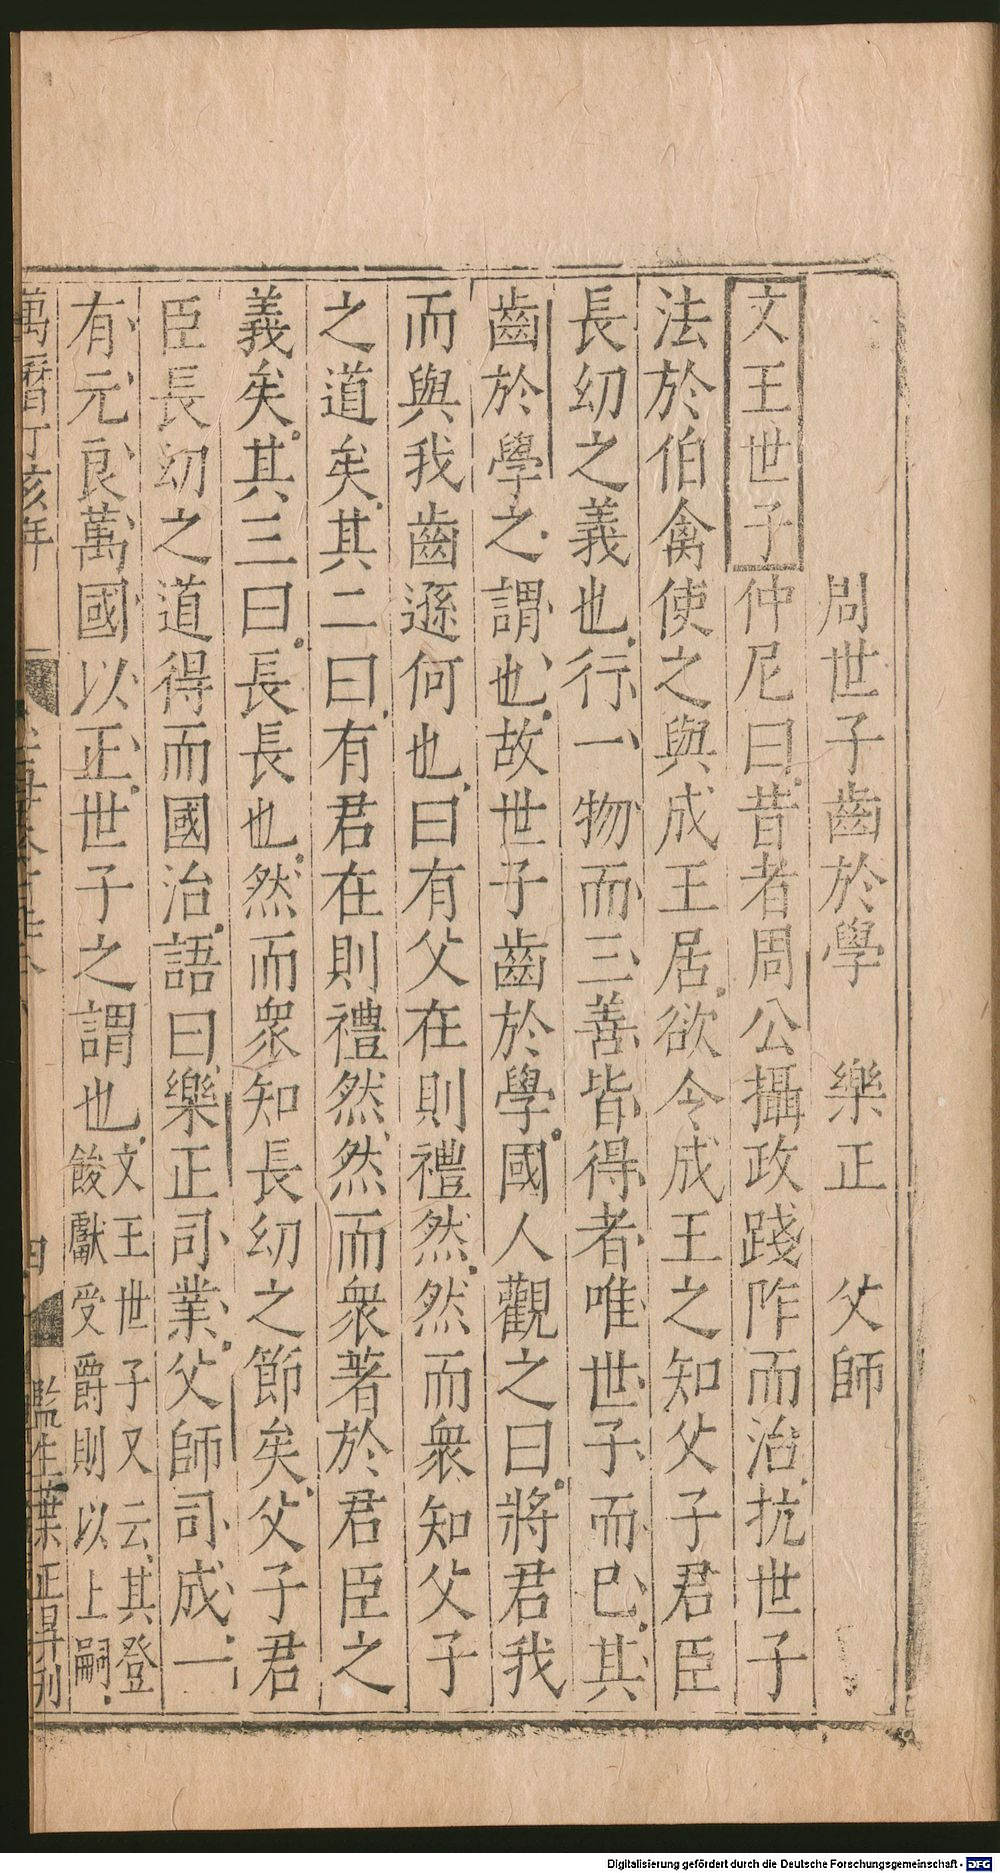 周世子齒於學　樂正　父師
文王世子仲尼曰昔者周公攝政踐阼而治抗世子
法於伯禽使之與成王居欲令成王之知父子君臣
長幼之義也行一物而三善皆得者唯世子而已其
齒於學之謂也故世子齒於學國人觀之曰將君我
而與我齒遜何也曰有父在則禮然然而衆知父子
之道矣其二曰有君在則禮然然而衆著於君臣之
義矣其三曰長長也然而衆知長幼之節矣父子君
臣長幼之道得而國治語曰樂正司業父師司成一
有元良萬國以正世子之謂也文王世子又云其登
餕獻受爵則以上嗣
萬曆丁亥年
四
監生葉正昇刋
Digitalisierung gefördert durch die Deutsche Forschungsgemeinschaft - DFG